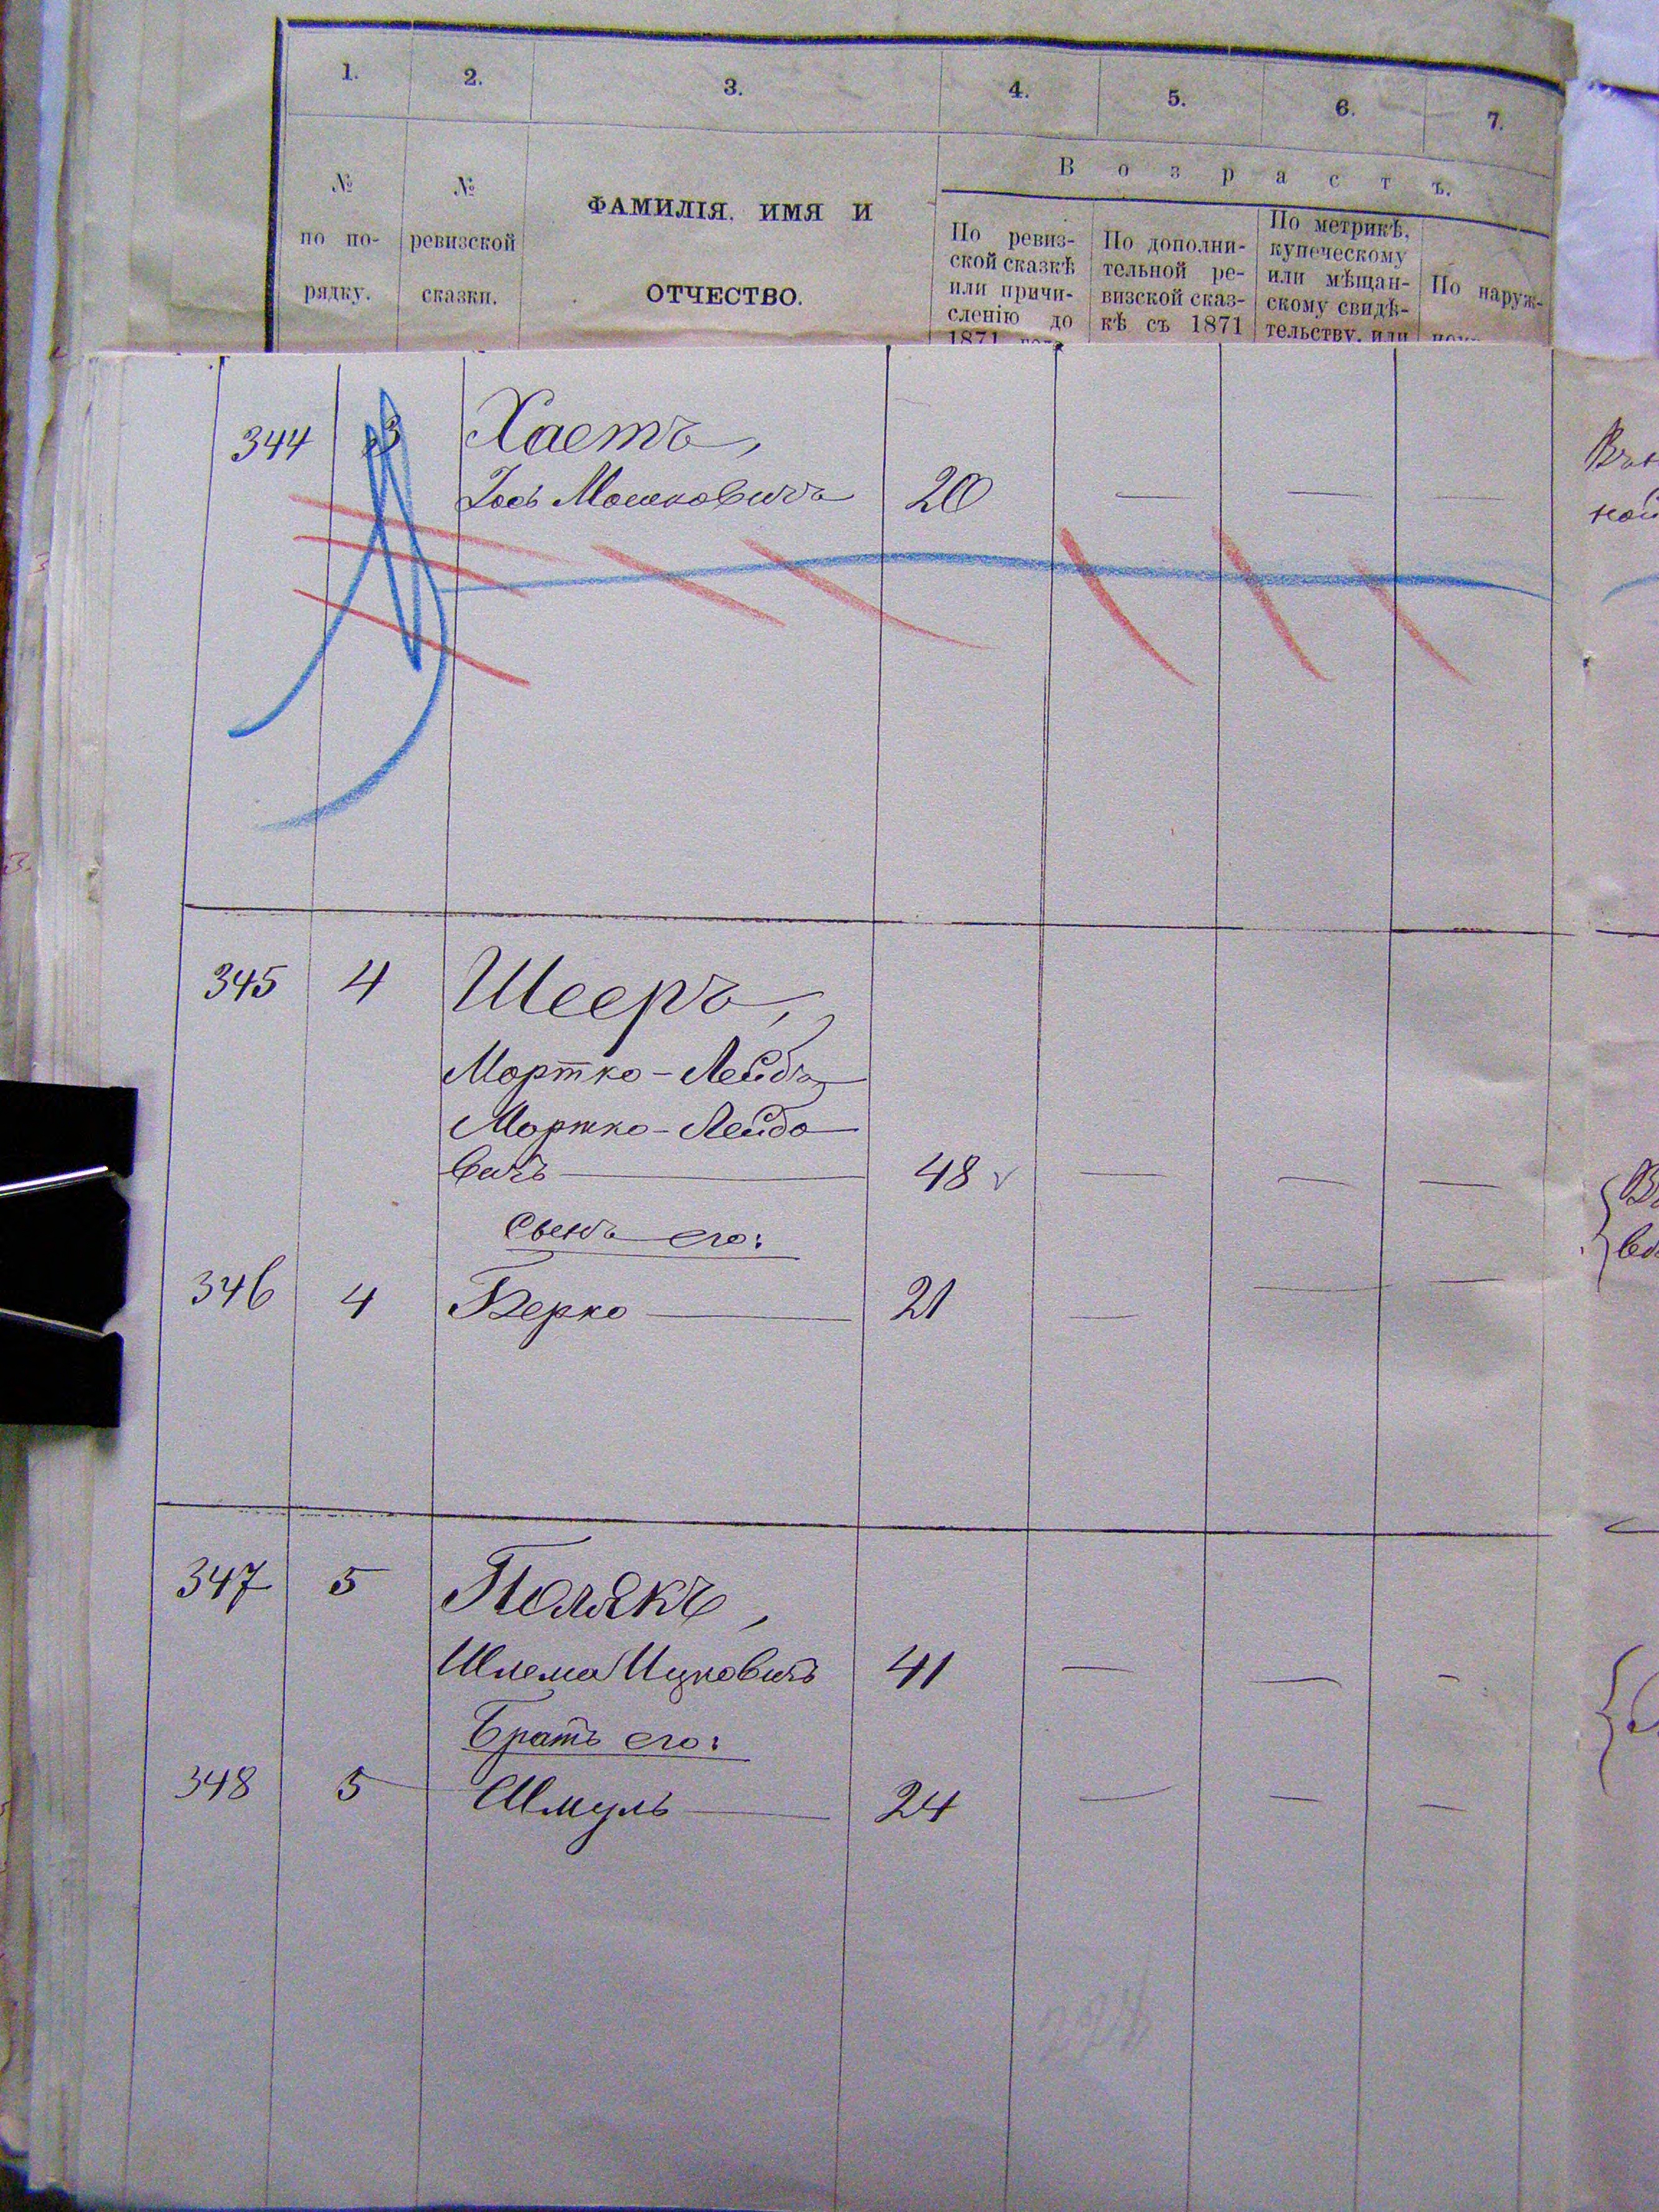 1. 2. 3. 4. 5. 6. 7.
В о з р а с т ъ.
№ по по- рядку.
№ ревизской сказки.
ФАМИЛІЯ, ИМЯ И
ОТЧЕСТВО.
По ревиз-
ской сказкѣ
или причи-
сленію до
1871 года
По дополни-
тельной ре-
визской сказ-
кѣ съ 1871
По метрикѣ,
купеческому
или мѣщан-
скому свидѣ-
тельству, или
По наруж-
344 3 Хаетъ,
Іось Мошковичъ 20 — — —
345 4 Шееръ,
Мортко-Лейбъ
Мортко-Лейбо
вичъ 48 — — —
Сынъ его:
346 4 Берко 21 — — —
347 5 Полякъ,
Шлема Ицковичъ 41 — — -
Братъ его:
348 5 Шмуль 24 — — —
224